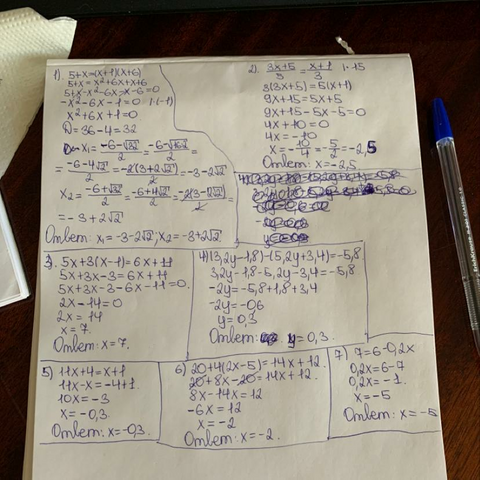 1). 5+x=(x+1)(x+6)
5+x=x²+6x+x+6
5+x-x²-6x-x-6=0
-x²-6x-1=0 |·(-1)
x²+6x+1=0
D=36-4=32
x₁=(-6-√32)/2=(-6-√16·2)/2=
=(-6-4√2)/2=(-2(3+2√2))/2=-3-2√2
x₂=(-6+√32)/2=(-6+4√2)/2=(-2(3-2√2))/2=
=-3+2√2
Ответ: x₁=-3-2√2; x₂=-3+2√2
2). (3x+5)/3=(x+1)/3 |·15
3(3x+5)=5(x+1)
9x+15=5x+5
9x+15-5x-5=0
4x+10=0
4x=-10
x=-10/4=-5/2=-2,5
Ответ: x=-2,5
3). 5x+3(x-1)=6x+11
5x+3x-3=6x+11
5x+3x-3-6x-11=0
2x-14=0
2x=14
x=7.
Ответ: x=7.
4) (3,2y-1,8)-(5,2y+3,4)=-5,8
3,2y-1,8-5,2y-3,4=-5,8
-2y=-5,8+1,8+3,4
-2y=-06
y=0,3
Ответ: y=0,3.
5) 11x+4=x+1
11x-x=-4+1
10x=-3
x=-0,3.
Ответ: x=-0,3.
6) 20+4(2x-5)=14x+12.
20+8x-20=14x+12.
8x-14x=12
-6x=12
x=-2
Ответ: x=-2.
7) 7=6-0,2x
0,2x=6-7
0,2x=-1.
x=-5
Ответ: x=-5